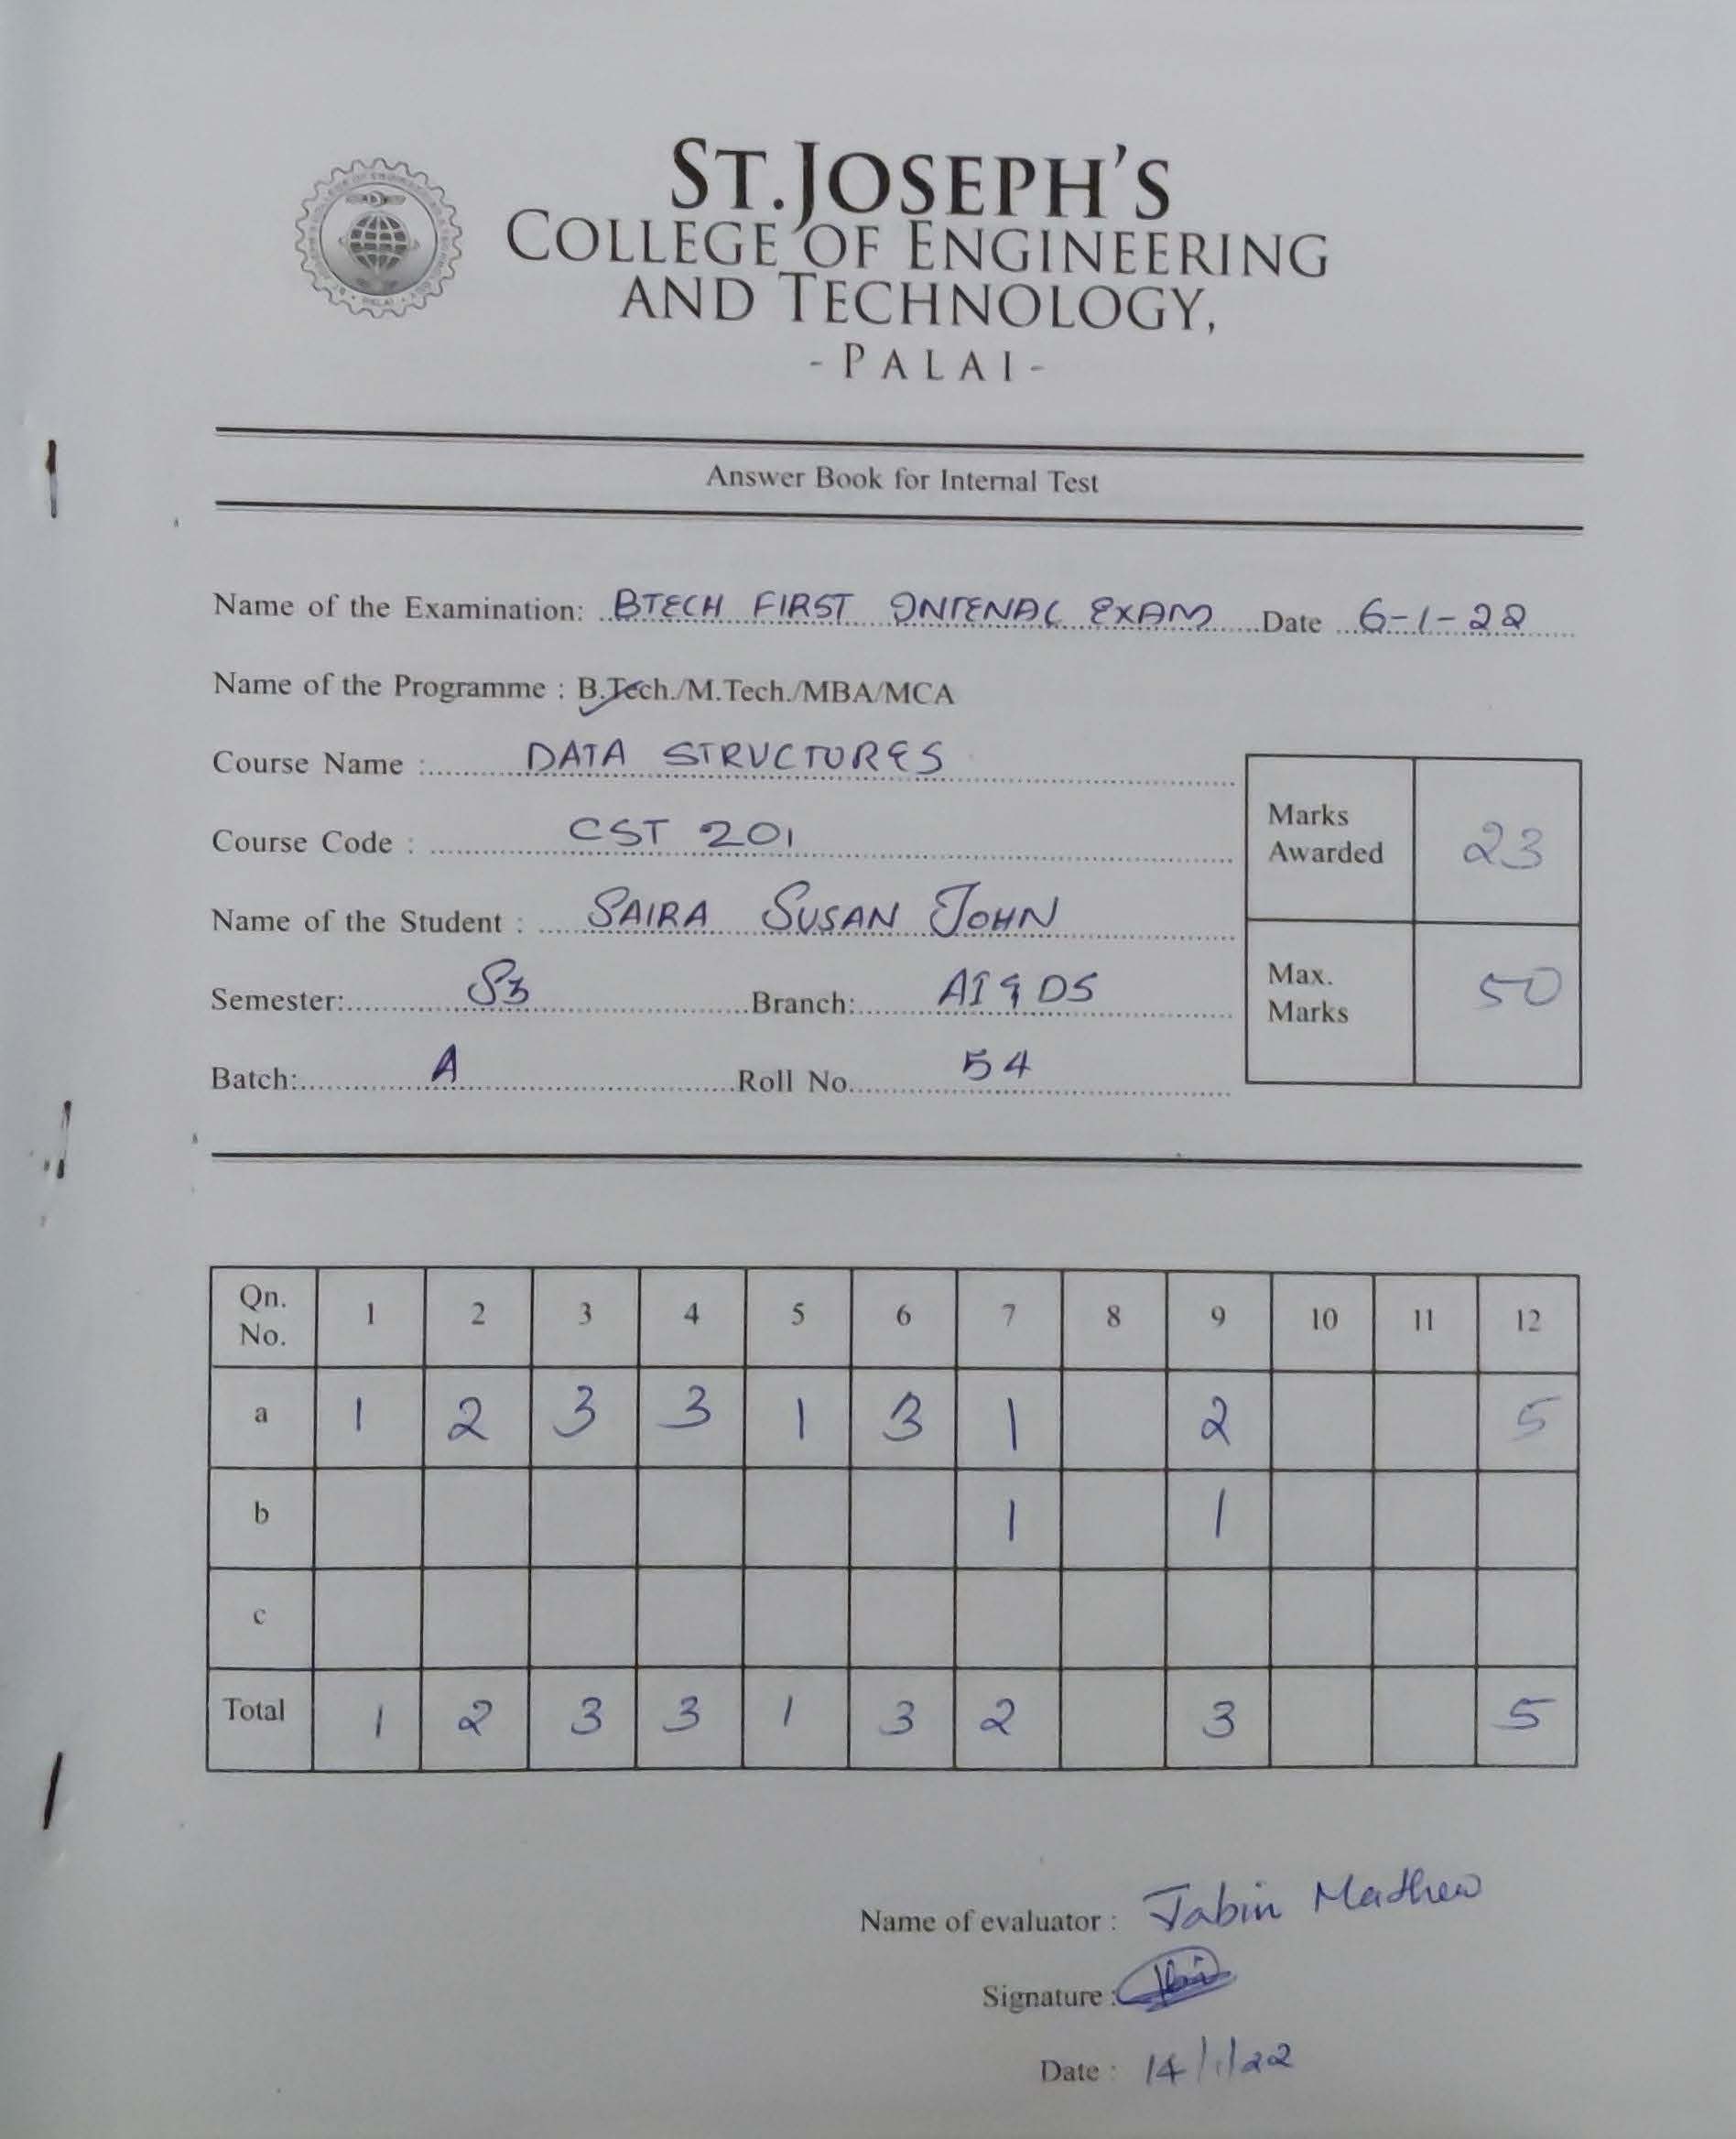 ST. JOSEPH'S
COLLEGE OF ENGINEERING
AND TECHNOLOGY,
- PALAI -
Answer Book for Internal Test
Name of the Examination: BTECH FIRST INTENAL EXAM Date 6-1-22
Name of the Programme : B.Tech./M.Tech./MBA/MCA
Course Name : DATA STRUCTURES
Course Code : CST 201
Name of the Student : SAIRA SUSAN JOHN
Semester: S3 Branch: AI & DS
Batch: A Roll No. 54
Marks Awarded 23
Max. Marks 50
Qn. No. 1 2 3 4 5 6 7 8 9 10 11 12
a 1 2 3 3 1 3 1 2 5
b 1 1
c
Total 1 2 3 3 1 3 2 3 5
Name of evaluator : Jabin Mathew
Signature :
Date : 14/1/22